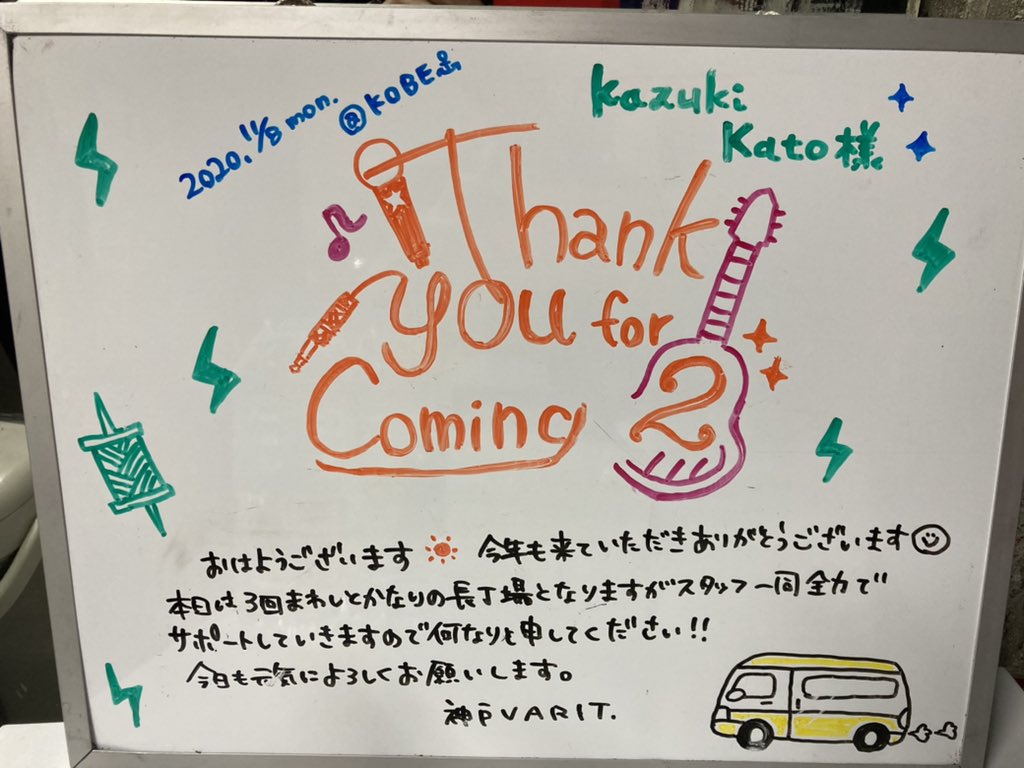 2020. 11/8 mon. @KOBE
Kazuki
Kato様
Thank
you for
Coming 2
おはようございます 今年も来ていただきありがとうございます
本日は3回まわしとかなりの長丁場となりますがスタッフ一同全力で
サポートしていきますので何なりと申してください!!
今日も元気によろしくお願いします。
神戸VARIT.